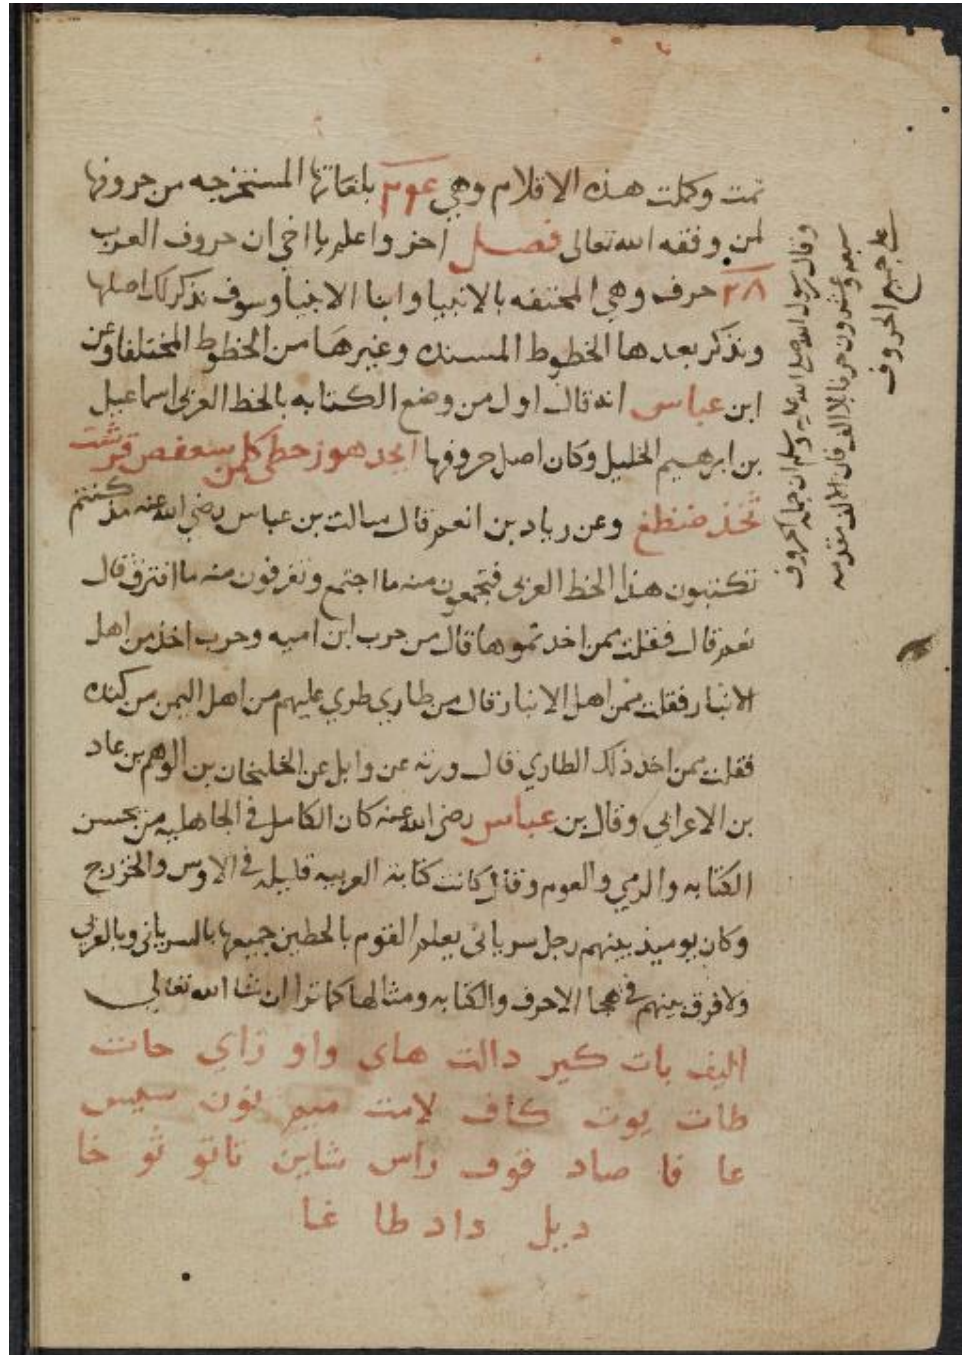 تمت وكملت هذه الاقلام وهي بلغاتها المستخرجه من حروفها
لمن وفقه الله تعالى فصل اخر واعلم يا اخي ان حروف العرب
٢٨ حرف وهي المختفه بالانبيا وابنا الانبيا وسوف نذكر لك اصلها
ونذكر بعدها الخطوط المسنده وغيرها من الخطوط المختلفا وعن
ابن عباس انه قال اول من وضع الكتابه بالخط العربي اسماعيل
بن ابرهيم الخليل وكان اصل حروفها ابجد هوز حطي كلمن سعفص قرشت
ثخذ ضظغ وعن زياد بن انعم قال سالت بن عباس رضي الله عنه مذ كنتم
تكتبون هذا الخط العربي فتجمعون منه ما اجتمع وتفرقون منه ما افترق قال
نعم قال فقلت ممن اخدتموها قال من حرب ابن اميه وحرب اخذ من اهل
الانبار فقلت ممن اهل الانبار قال من طاري طري عليهم من اهل اليمن من كنده
فقلت ممن اخد ذلك الطاري قال ورثه عن وابل عن الخلجان بن الوهم بن عاد
بن الاعرابي وقال بن عباس رضي الله عنه كان الكامل في الجاهليه من يحسن
الكتابه والرمي والعوم وقال كانت كتابة العربيه قليله في الاوس والخزرج
وكان يوميذ بينهم رجل سرياني يعلم القوم بالخطين جميعها بالسرياني وبالعربي
ولا فرق بينهم في هجا الاحرف والكتابه ومثالها كما ترا ان شا الله تعالى
اليف بات كير دالت هاى واو زاي حات
طات يوت كاف لامت ميم نون سيس
عا فا صاد قوف راس شاين تاتو ثو خا
ديل داد طا غا
وقال رسول الله صلى الله عليه وسلم ان جملة الحروف
سبعه وعشرون حرفا بلا الف فان الالف مقدمه
على جميع الحروف